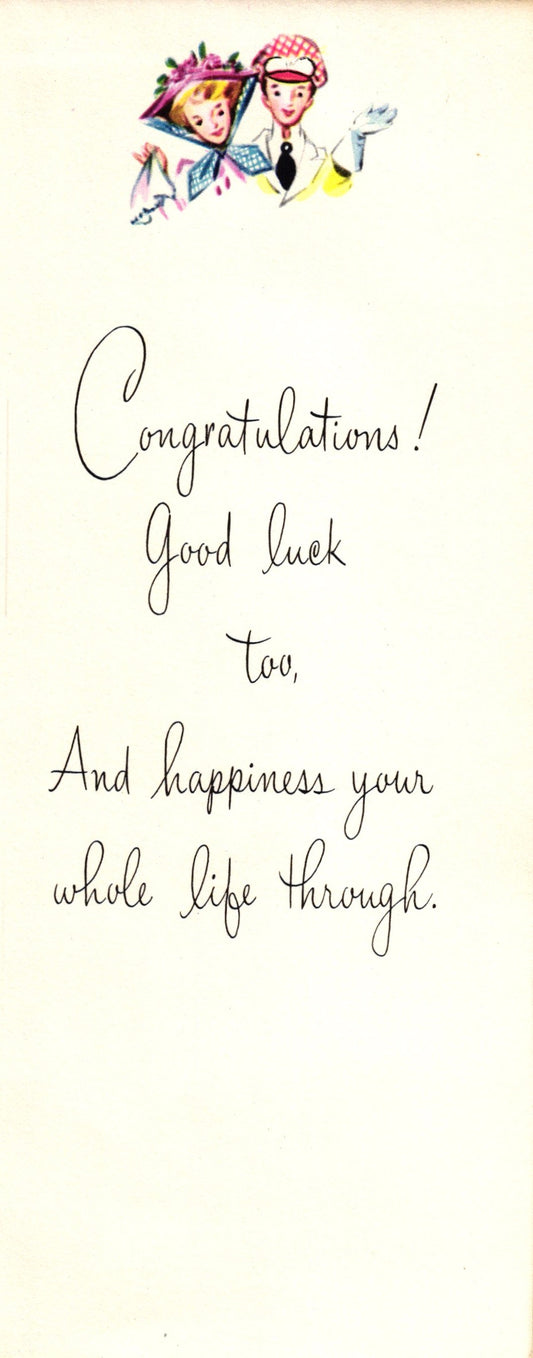 Congratulations!
Good luck
too,
And happiness your
whole life through.